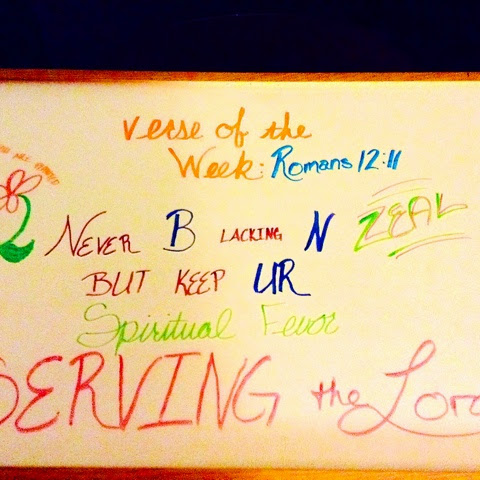 Verse of the
Week: Romans 12:11
2
NEVER B LACKING N ZEAL
BUT KEEP UR
Spiritual Fevor
SERVING the Lord